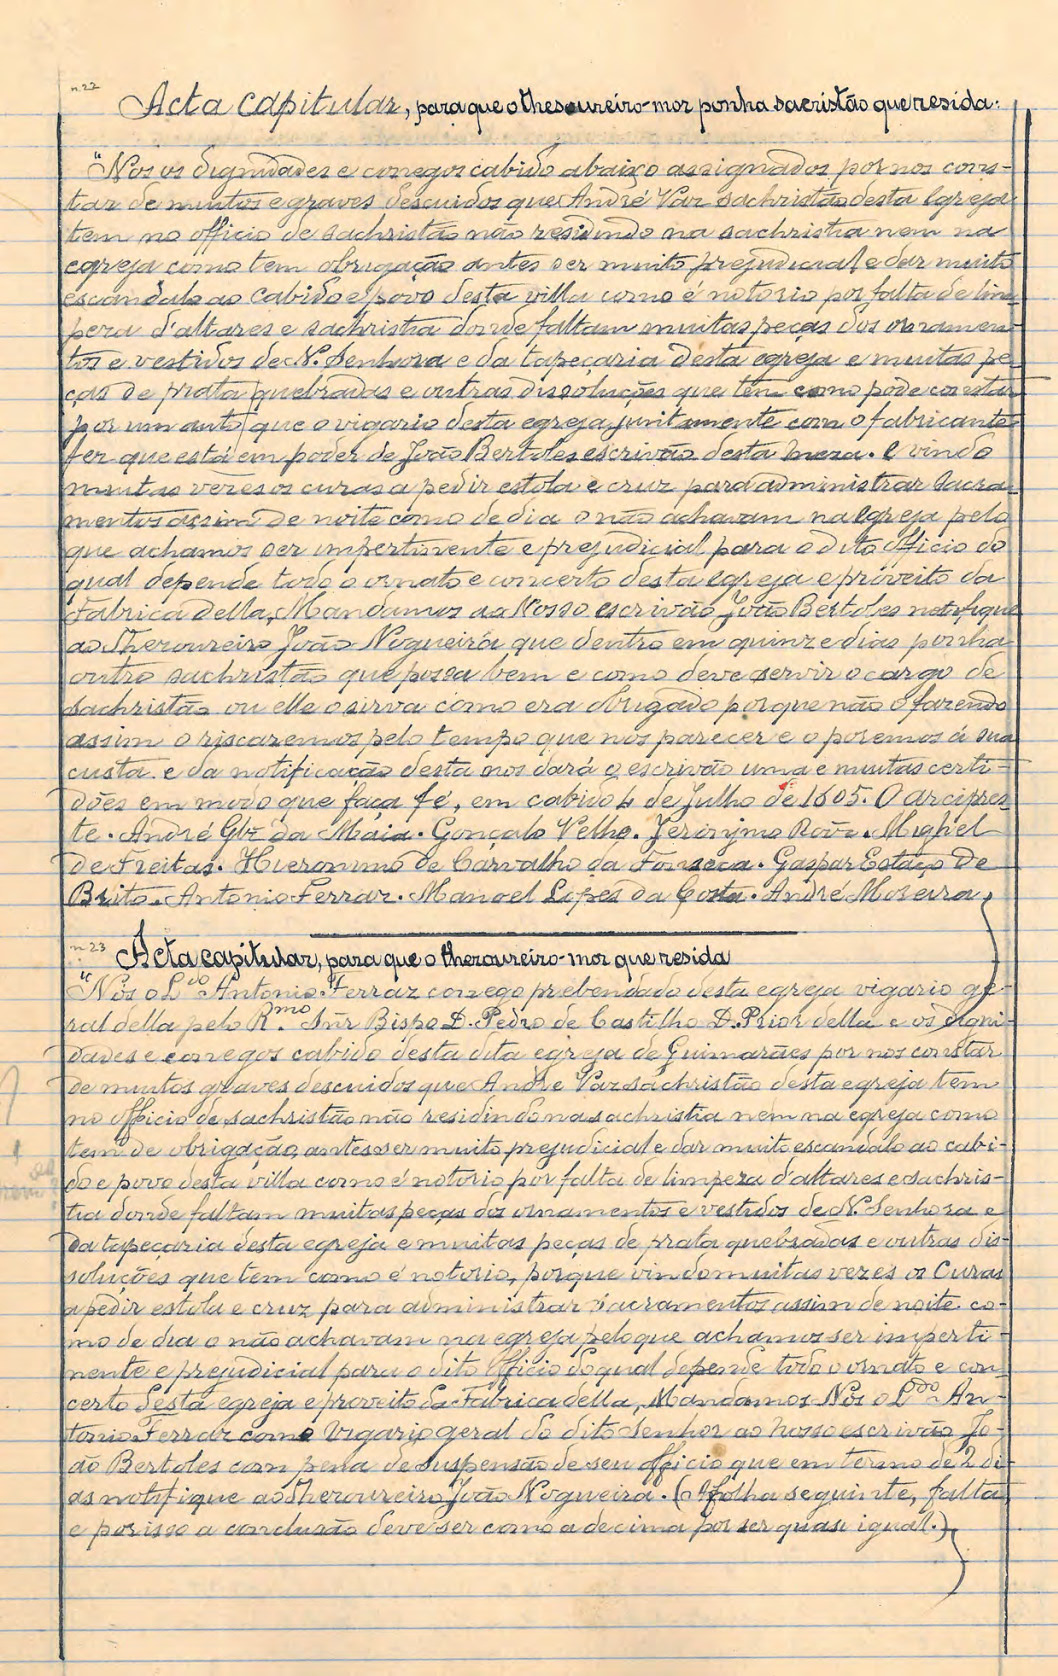 n. 22
Acta capitular, para que o thesoureiro-mor ponha sacristão que resida.
"Nos os dignidades e conegos cabido abaixo assignados por nos cons-
tar de muitos e graves descuidos que André Vaz sachristão desta egreja
tem no officio de sachristão não residindo na sachristia nem na
egreja como tem obrigação antes ser muito prejudicial e dar muito
escandalo ao cabido e povo desta villa como é notorio por falta de lim-
peza d'altares e sachristia donde faltam muitas peças dos ornamen-
tos e vestidos de N. Senhora e da tapeçaria desta egreja e muitas pe-
ças de prata quebradas e outras dissoluções que tem como pode constar
por um auto que o vigario desta egreja juntamente com o fabricante
fer que está em poder de João Bertoles escrivão desta meza. e vindo
muitas vezes os curas a pedir estola e cruz para administrar Sacra-
mentos assim de noite como de dia o não achavam na egreja pelo
que achamos ser impertinente e prejudicial para o dito officio do
qual depende todo o ornato e concerto desta egreja e proveito da
Fabrica della, Mandamos ao Nosso escrivão João Bertoles notifique
ao Thezoureiro João Nogueira que dentro em quinze dias ponha
outro sachristão que possa bem e como deve servir o cargo de
sachristão ou elle o sirva como era obrigado porque não o fazendo
assim o riscaremos pelo tempo que nos parecer e o poremos á sua
custa. e da notificação desta nos dará o escrivão uma e muitas certi-
dões em modo que faça fé, em cabido 4 de Julho de 1605. O arcipres-
te. André Glz da Maia. Gonçalo Velho. Jeronymo Roiz. Miguel
de Freitas. Hieronimo de Carvalho da Fonseca. Gaspar Estaço de
Brito. Antonio Ferraz. Manoel Lopes da Costa. André Moreira
n. 23
Acta capitular, para que o thezoureiro-mor que resida
"Nós o L.do Antonio Ferraz conego prebendado desta egreja vigario ge-
ral della pelo R.mo Snr Bispo D. Pedro de Castilho D. Prior della e os digni-
dades e conegos cabido desta dita egreja de Guimarães por nos constar
de muitos graves descuidos que André Vaz sachristão desta egreja tem
no officio de sachristão não residindo na sachristia nem na egreja como
tem de obrigação, antes ser muito prejudicial e dar muito escandalo ao cabi-
do e povo desta villa como é notorio por falta de limpeza d'altares e sachris-
tia donde faltam muitas peças dos ornamentos e vestidos de N. Senhora e
da tapeçaria desta egreja e muitas peças de prata quebradas e outras dis-
soluções que tem como é notorio, porque vindo muitas vezes os Curas
a pedir estola e cruz para administrar sacramentos assim de noite co-
mo de dia o não achavam na egreja pelo que achamos ser imperti-
nente e prejudicial para o dito Officio do qual depende todo o ornato e con-
certo desta egreja e proveito da Fabrica della, Mandamos Nós o L.do An-
tonio Ferraz como Vigario geral do dito Senhor ao nosso escrivão Jo-
ão Bertoles com pena de suspensão de seu officio que em termo de 2 di-
as notifique ao Thezoureiro João Nogueira. (A folha seguinte, falta,
e por isso a conclusão deve ser como a decima por ser quasi igual.)